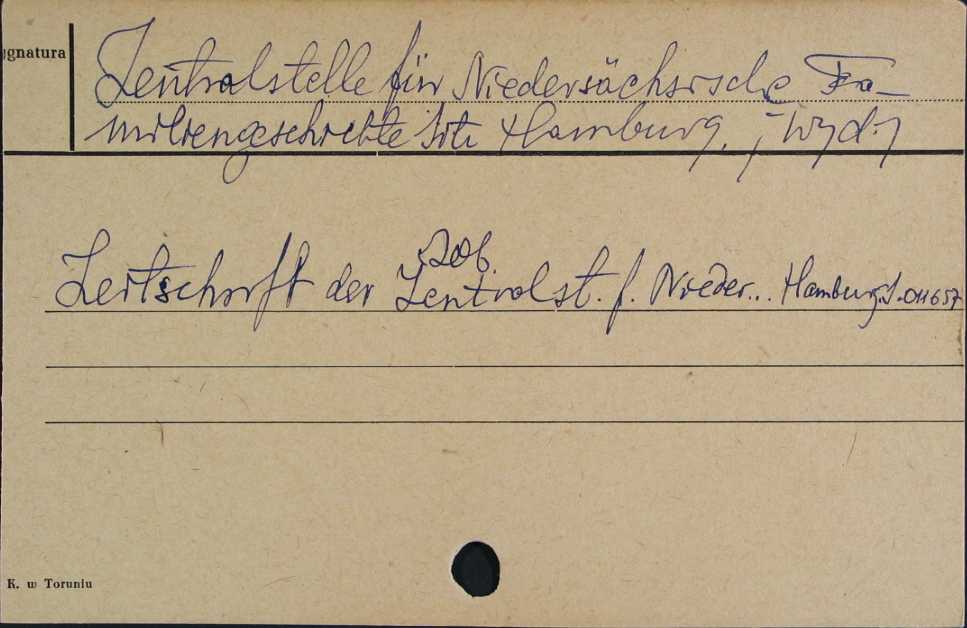 ygnatura
Zentralstelle für Niedersächsische Fa-
miliengeschichte Sitz Hamburg. /Wyd./
Zob.
Zeitschrift der Zentralst. f. Nieder... Hamburg S.011657
K. w Toruniu